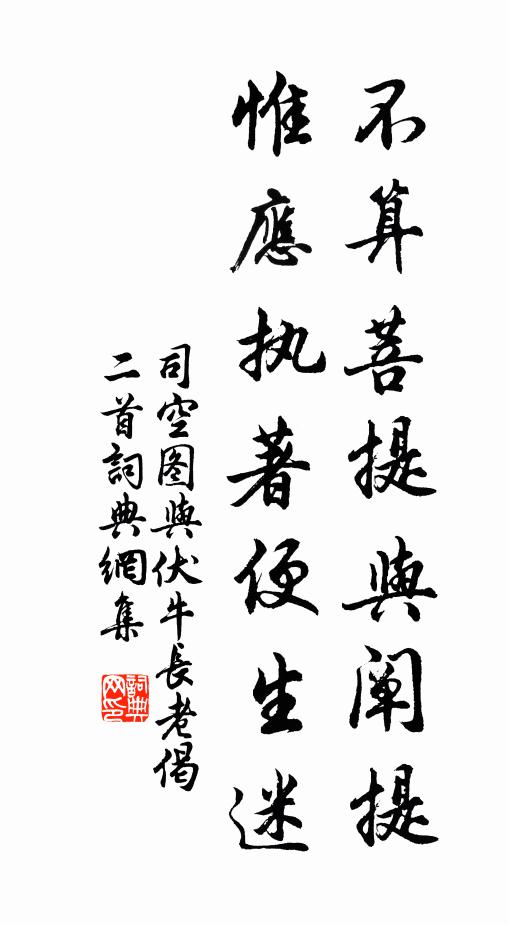 不算菩提與阐提
惟應执著便生迷
司空图與伏牛長老偈
二首詞典網集
詞典
网印